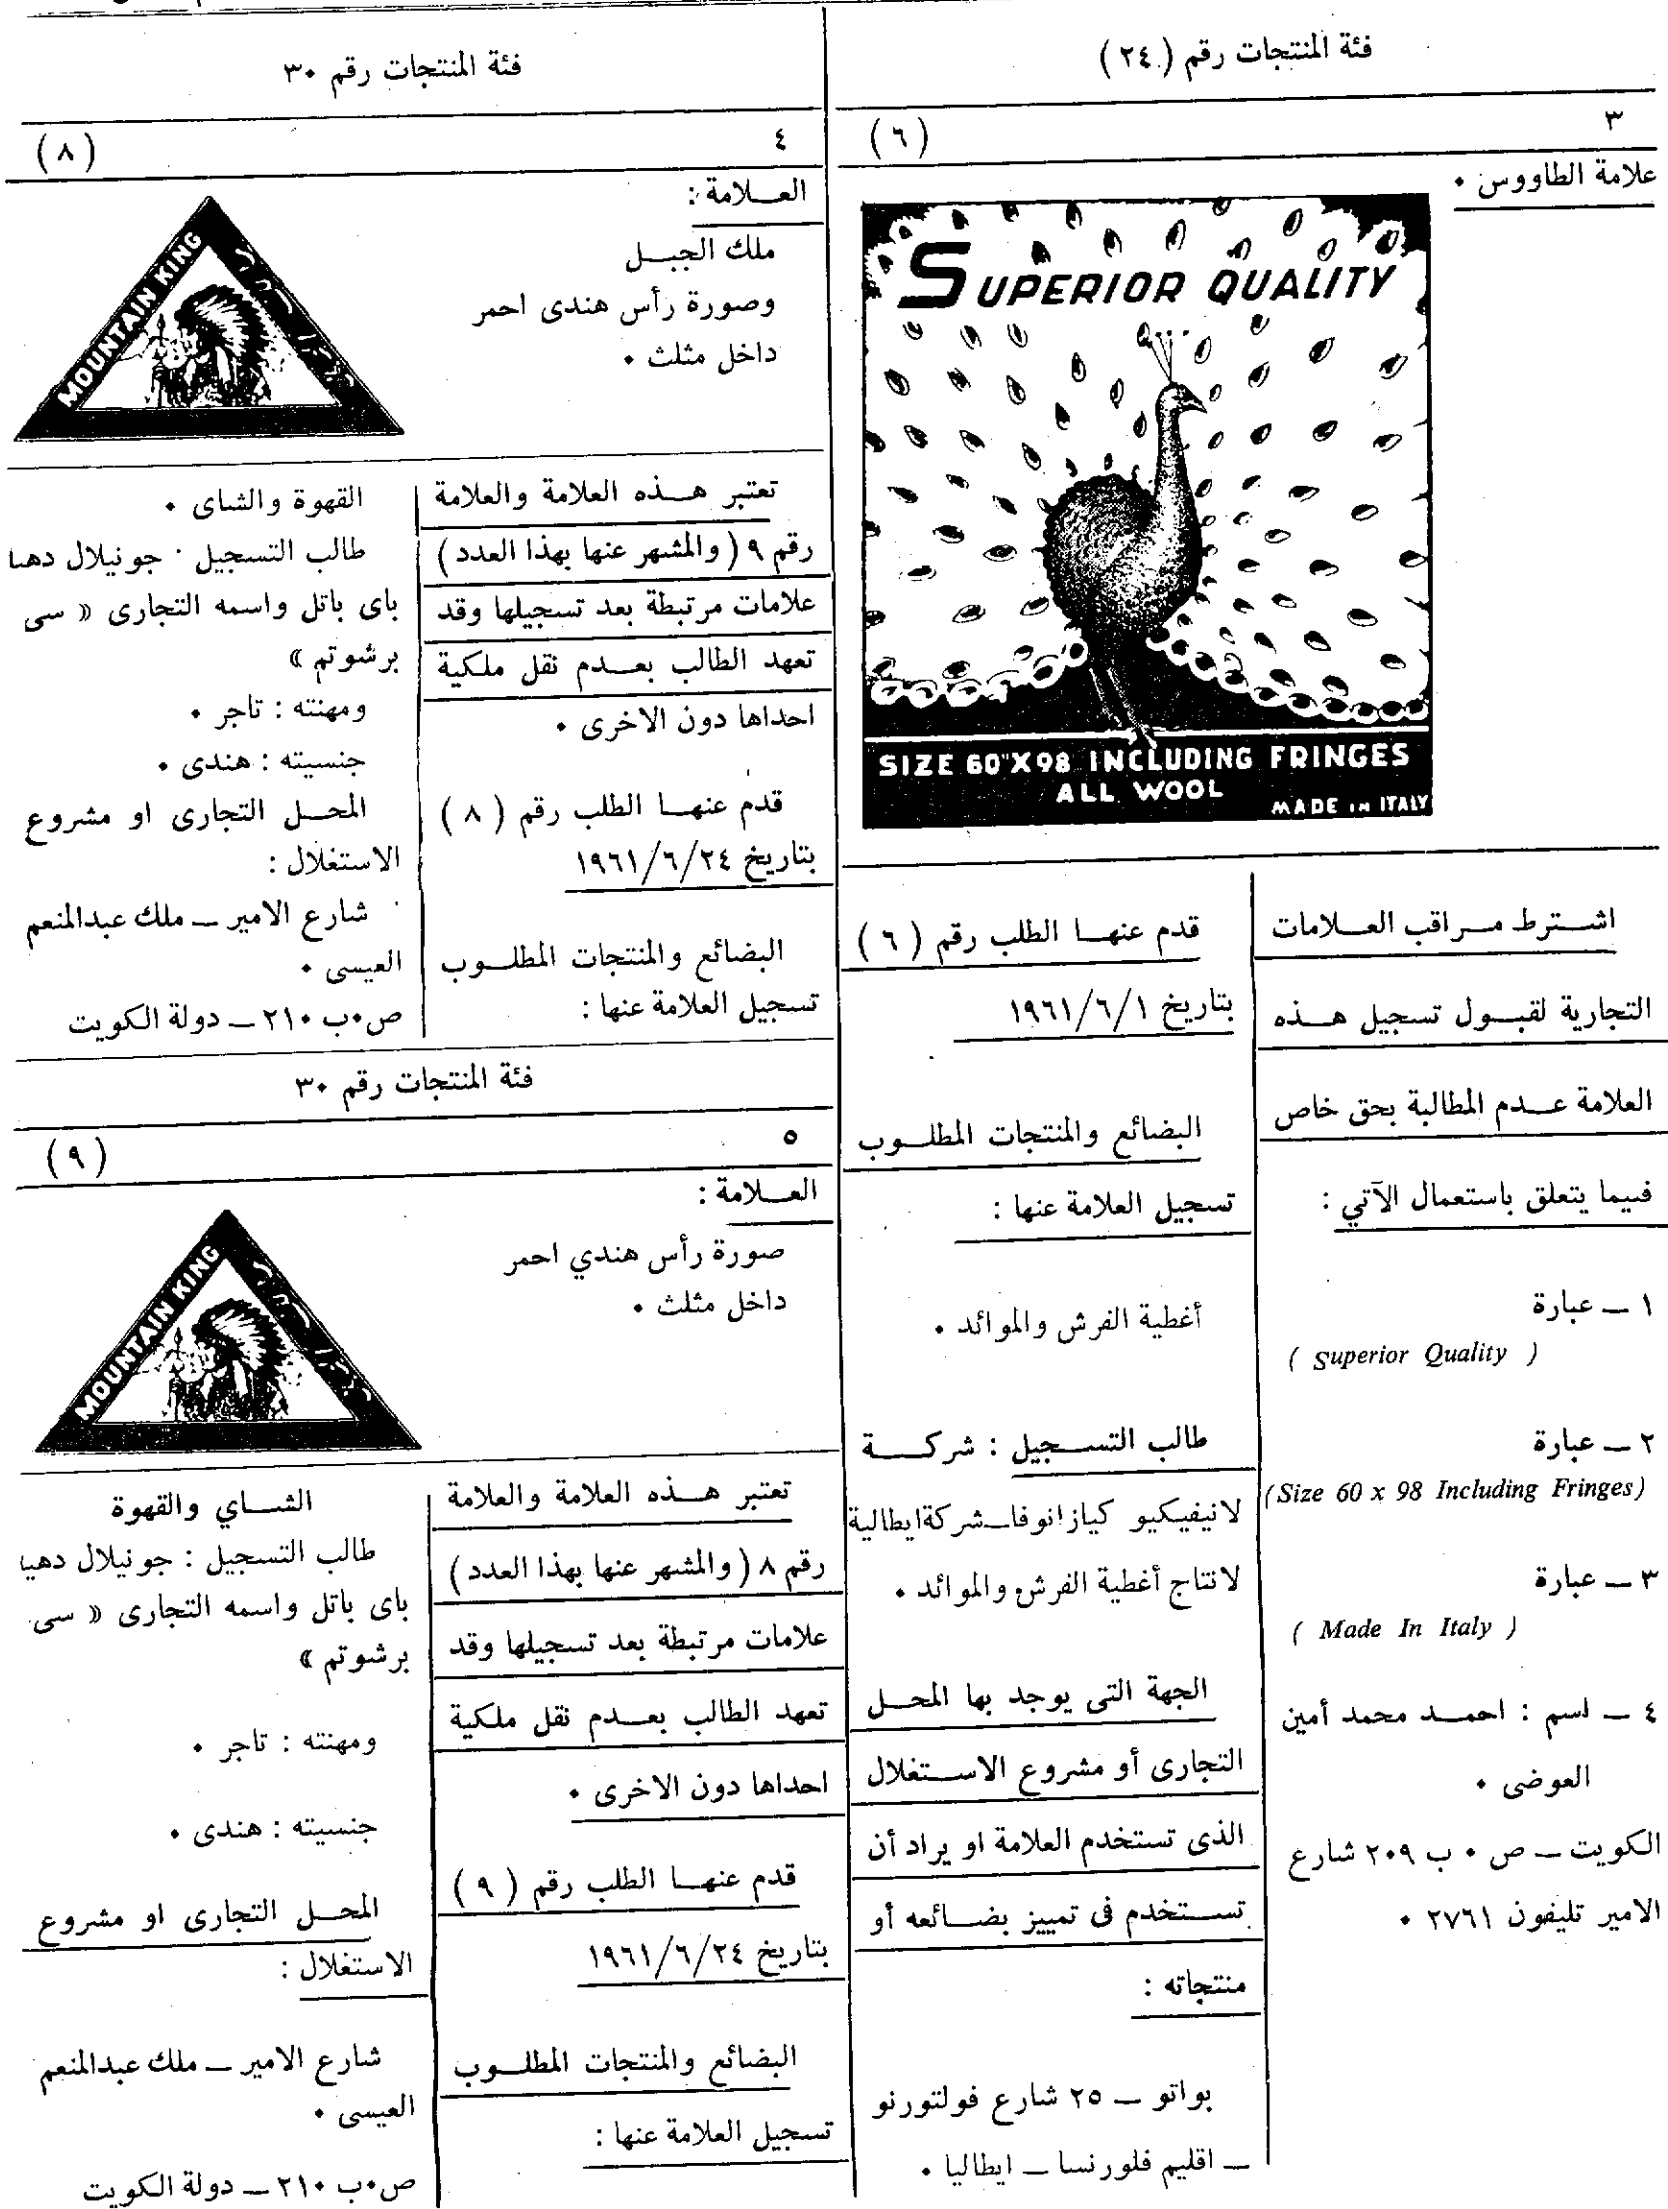 فئة المنتجات رقم (٢٤)
٣
(٦)
علامة الطاووس ٠
SUPERIOR QUALITY
SIZE 60"X98 INCLUDING FRINGES
ALL WOOL
MADE IN ITALY
اشترط مراقب العلامات
التجارية لقبول تسجيل هذه
العلامة عدم المطالبة بحق خاص
فيما يتعلق باستعمال الآتي :
١ ــ عبارة
( Superior Quality )
٢ ــ عبارة
(Size 60 x 98 Including Fringes)
٣ ــ عبارة
( Made In Italy )
٤ ــ اسم : احمد محمد أمين
العوضى ٠
الكويت ــ ص ٠ ب ٢٠٩ شارع
الامير تليفون ٢٧٦١ ٠
قدم عنها الطلب رقم ( ٦ )
بتاريخ ١٩٦١/٦/١
البضائع والمنتجات المطلوب
تسجيل العلامة عنها :
أغطية الفرش والموائد ٠
طالب التسجيل : شركة
لانيفيكيو كيازانوفا ــ شركة ايطالية
لانتاج أغطية الفرش والموائد ٠
الجهة التى يوجد بها المحل
التجارى أو مشروع الاستغلال
الذى تستخدم العلامة او يراد أن
تستخدم فى تمييز بضائعه أو
منتجاته :
بواتو ــ ٢٥ شارع فولتورنو
ــ اقليم فلورنسا ــ ايطاليا ٠
فئة المنتجات رقم ٣٠
٤
(٨)
العلامة :
ملك الجبل
وصورة رأس هندى احمر
داخل مثلث ٠
MOUNTAIN KING
تعتبر هذه العلامة والعلامة
رقم ٩ ( والمشهر عنها بهذا العدد )
علامات مرتبطة بعد تسجيلها وقد
تعهد الطالب بعدم نقل ملكية
احداها دون الاخرى ٠
قدم عنها الطلب رقم ( ٨ )
بتاريخ ١٩٦١/٦/٢٤
البضائع والمنتجات المطلوب
تسجيل العلامة عنها :
القهوة والشاى ٠
طالب التسجيل ٠ جونيلال دهيا
باى باتل واسمه التجارى « سى
برشوتم »
ومهنته : تاجر ٠
جنسيته : هندى ٠
المحل التجارى او مشروع
الاستغلال :
شارع الامير ــ ملك عبدالمنعم
العيسى ٠
ص٠ب ٢١٠ ــ دولة الكويت
فئة المنتجات رقم ٣٠
٥
(٩)
العلامة :
صورة رأس هندي احمر
داخل مثلث ٠
MOUNTAIN KING
تعتبر هذه العلامة والعلامة
رقم ٨ ( والمشهر عنها بهذا العدد )
علامات مرتبطة بعد تسجيلها وقد
تعهد الطالب بعدم نقل ملكية
احداها دون الاخرى ٠
قدم عنها الطلب رقم ( ٩ )
بتاريخ ١٩٦١/٦/٢٤
البضائع والمنتجات المطلوب
تسجيل العلامة عنها :
الشاي والقهوة
طالب التسجيل : جونيلال دهيا
باى باتل واسمه التجارى « سى
برشوتم »
ومهنته : تاجر ٠
جنسيته : هندى ٠
المحل التجارى او مشروع
الاستغلال :
شارع الامير ــ ملك عبدالمنعم
العيسى ٠
ص٠ب ٢١٠ ــ دولة الكويت